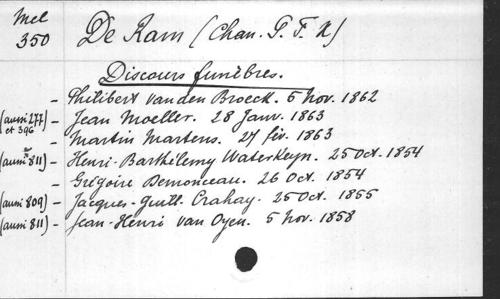 Mel
350
De Ram (Chan. P. F. X)
Discours funèbres.
- Philibert van den Broeck. 5 Nov. 1862
(aussi 277 et 396) - Jean Moeller. 28 Janv. 1863
- Martin Martens. 27 fév. 1863
(aussi 811) - Henri-Barthélemy Waterkeyn. 25 Oct. 1854
- Grégoire Demonceau. 26 Oct. 1854
(aussi 809) - Jacques-Guill. Crahay. 25 Oct. 1855
(aussi 811) - Jean-Henri van Oyen. 5 Nov. 1858